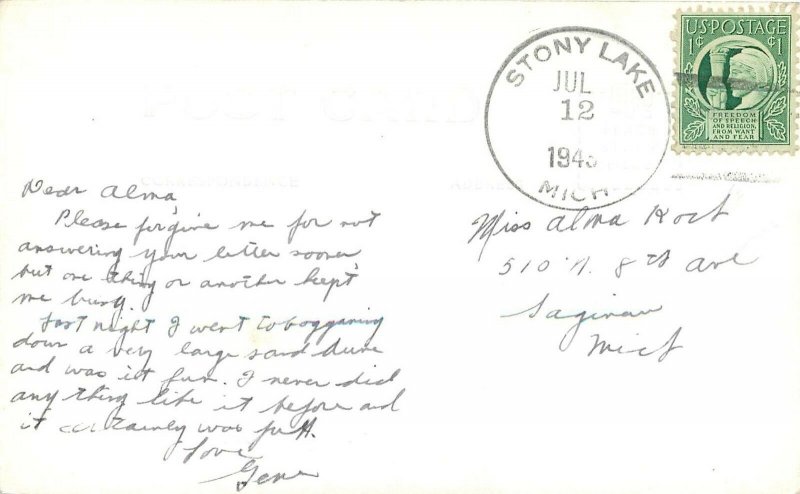 U.S. POSTAGE
1¢ 1¢
FREEDOM
OF SPEECH
AND RELIGION,
FROM WANT
AND FEAR
STONY LAKE
JUL
12
194
MICH
POST CARD
CORRESPONDENCE
Dear Alma,
Please forgive me for not
answering your letter sooner
but one thing or another kept
me busy.
Last night I went tobogganing
down a very large sand dune
and was it fun. I never did
any thing like it before and
it certainly was fun.
Love
Gene
Miss Alma Koch
510 N. 8th Ave
Saginaw
Mich